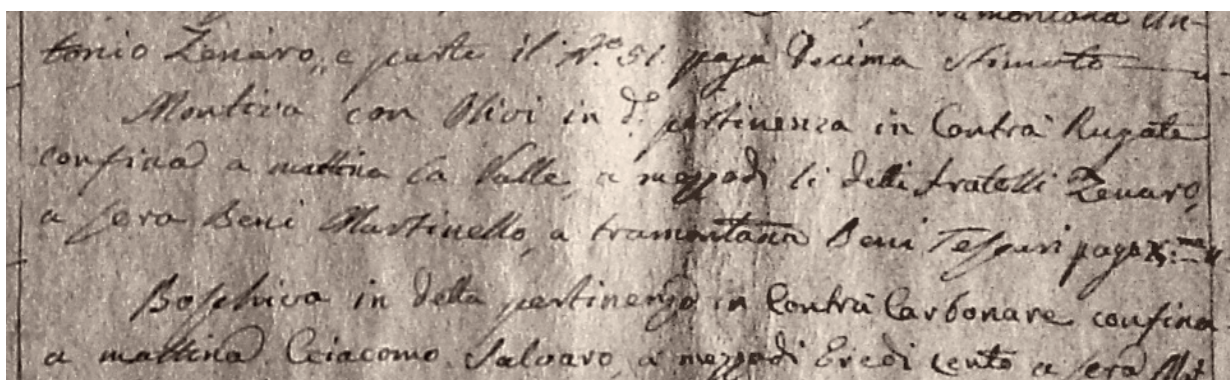 a tramontana An-
tonio Zenaro, e parte il N.º 51. paga Decima Stimato
Montiva con Olivi in d.ª pertinenza in Contrà Rugate
confina a mattina la Valle, a mezzodi li detti fratelli Zenaro,
a sera Beni Martinello, a tramontana Beni Tessari paga
Boschiva in detta pertinenza in Contrà Carbonare confina
a mattina Giacomo Salvaro, a mezzodi Eredi Cento a sera